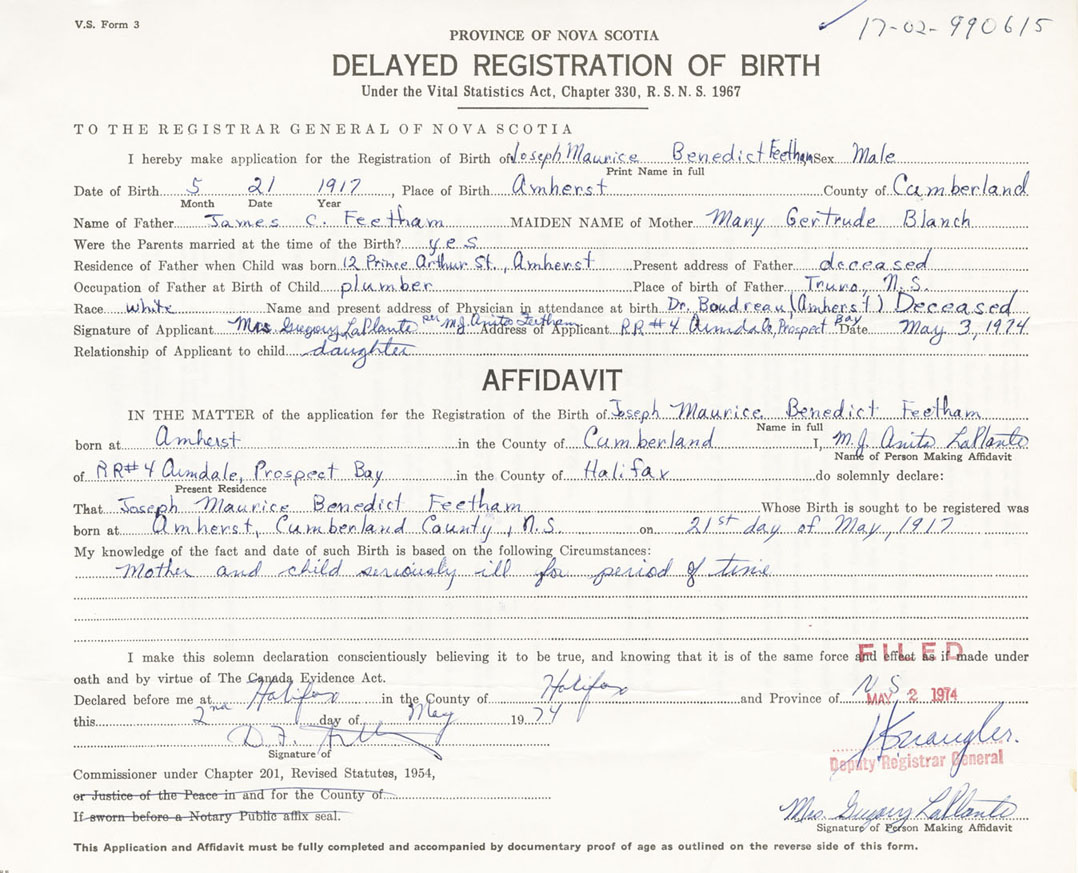 V.S. Form 3
17-02-990615
PROVINCE OF NOVA SCOTIA
DELAYED REGISTRATION OF BIRTH
Under the Vital Statistics Act, Chapter 330, R.S.N.S. 1967
TO THE REGISTRAR GENERAL OF NOVA SCOTIA
I hereby make application for the Registration of Birth of Joseph Maurice Benedict Feetham Sex Male
Print Name in full
Date of Birth 5 21 1917, Place of Birth Amherst County of Cumberland
Month Date Year
Name of Father James C. Feetham MAIDEN NAME of Mother Mary Gertrude Blanch
Were the Parents married at the time of the Birth? yes
Residence of Father when Child was born 12 Prince Arthur St., Amherst Present address of Father deceased
Occupation of Father at Birth of Child plumber Place of birth of Father Truro, N.S.
Race white Name and present address of Physician in attendance at birth Dr. Boudreau (Amherst) Deceased
Signature of Applicant Mrs. Gregory LaPlante per M.J. Anita Feetham Address of Applicant RR#4 Armdale, Prospect Bay Date May 3, 1974
Relationship of Applicant to child daughter
AFFIDAVIT
IN THE MATTER of the application for the Registration of the Birth of Joseph Maurice Benedict Feetham
Name in full
born at Amherst in the County of Cumberland I, M.J. Anita LaPlante
Name of Person Making Affidavit
of RR#4 Armdale, Prospect Bay in the County of Halifax do solemnly declare:
Present Residence
That Joseph Maurice Benedict Feetham Whose Birth is sought to be registered was
born at Amherst, Cumberland County, N.S. on 21st day of May, 1917
My knowledge of the fact and date of such Birth is based on the following Circumstances:
Mother and child seriously ill for period of time
I make this solemn declaration conscientiously believing it to be true, and knowing that it is of the same force and effect as if made under
FILED
oath and by virtue of The Canada Evidence Act.
Declared before me at Halifax in the County of Halifax and Province of N S
MAY 2 1974
this 2nd day of May 1974
D.F.
Signature of
Deputy Registrar General
Commissioner under Chapter 201, Revised Statutes, 1954,
or Justice of the Peace in and for the County of
If sworn before a Notary Public affix seal.
Mrs. Gregory LaPlante
Signature of Person Making Affidavit
This Application and Affidavit must be fully completed and accompanied by documentary proof of age as outlined on the reverse side of this form.